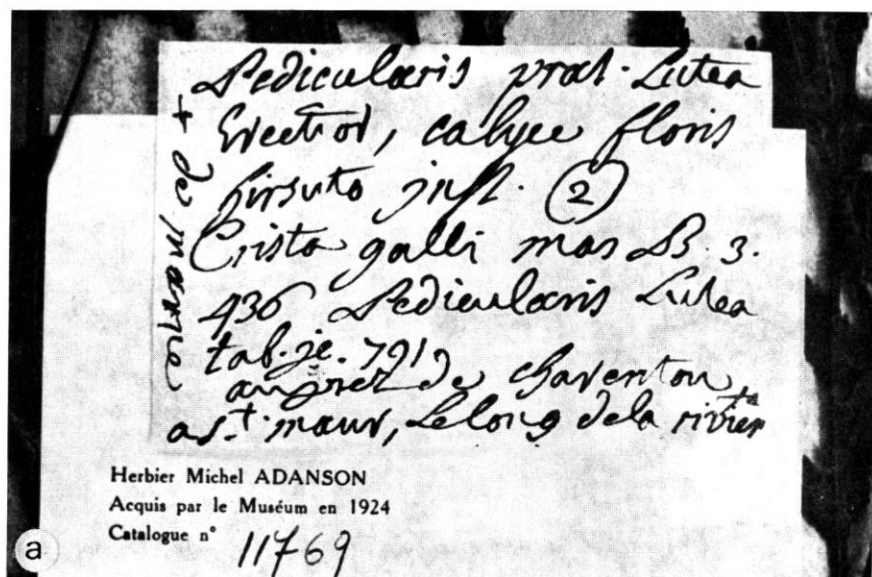 Pedicularis prat. Lutea
Erectior, calyce floris
hirsuto inst. ②
Crista galli mas B. 3.
436 Pedicularis Lutea
tab. ic. 791
auprez de charenton
a s.t maur, Le long de la rivier
+ de
Herbier Michel ADANSON
Acquis par le Muséum en 1924
Catalogue n° 11769
a